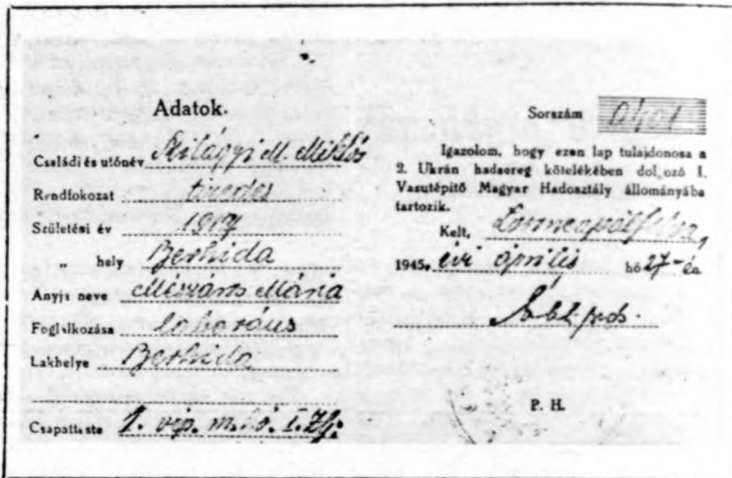 Adatok.
Családi és utónév Szilágyi M. Miklós
Rendfokozat tizedes
Születési év 1919
„ hely Berhida
Anyja neve Mészáros Mária
Foglalkozása
Lakhelye Berhida
Csapatteste 1. vip. m. ho. I. Zlj.
Sorszám 0401
Igazolom, hogy ezen lap tulajdonosa a
2. Ukrán hadsereg kötelékében dolgozó I.
Vasutépitő Magyar Hadosztály állományába
tartozik.
Kelt,
1945. évi április hó 27-én
P. H.